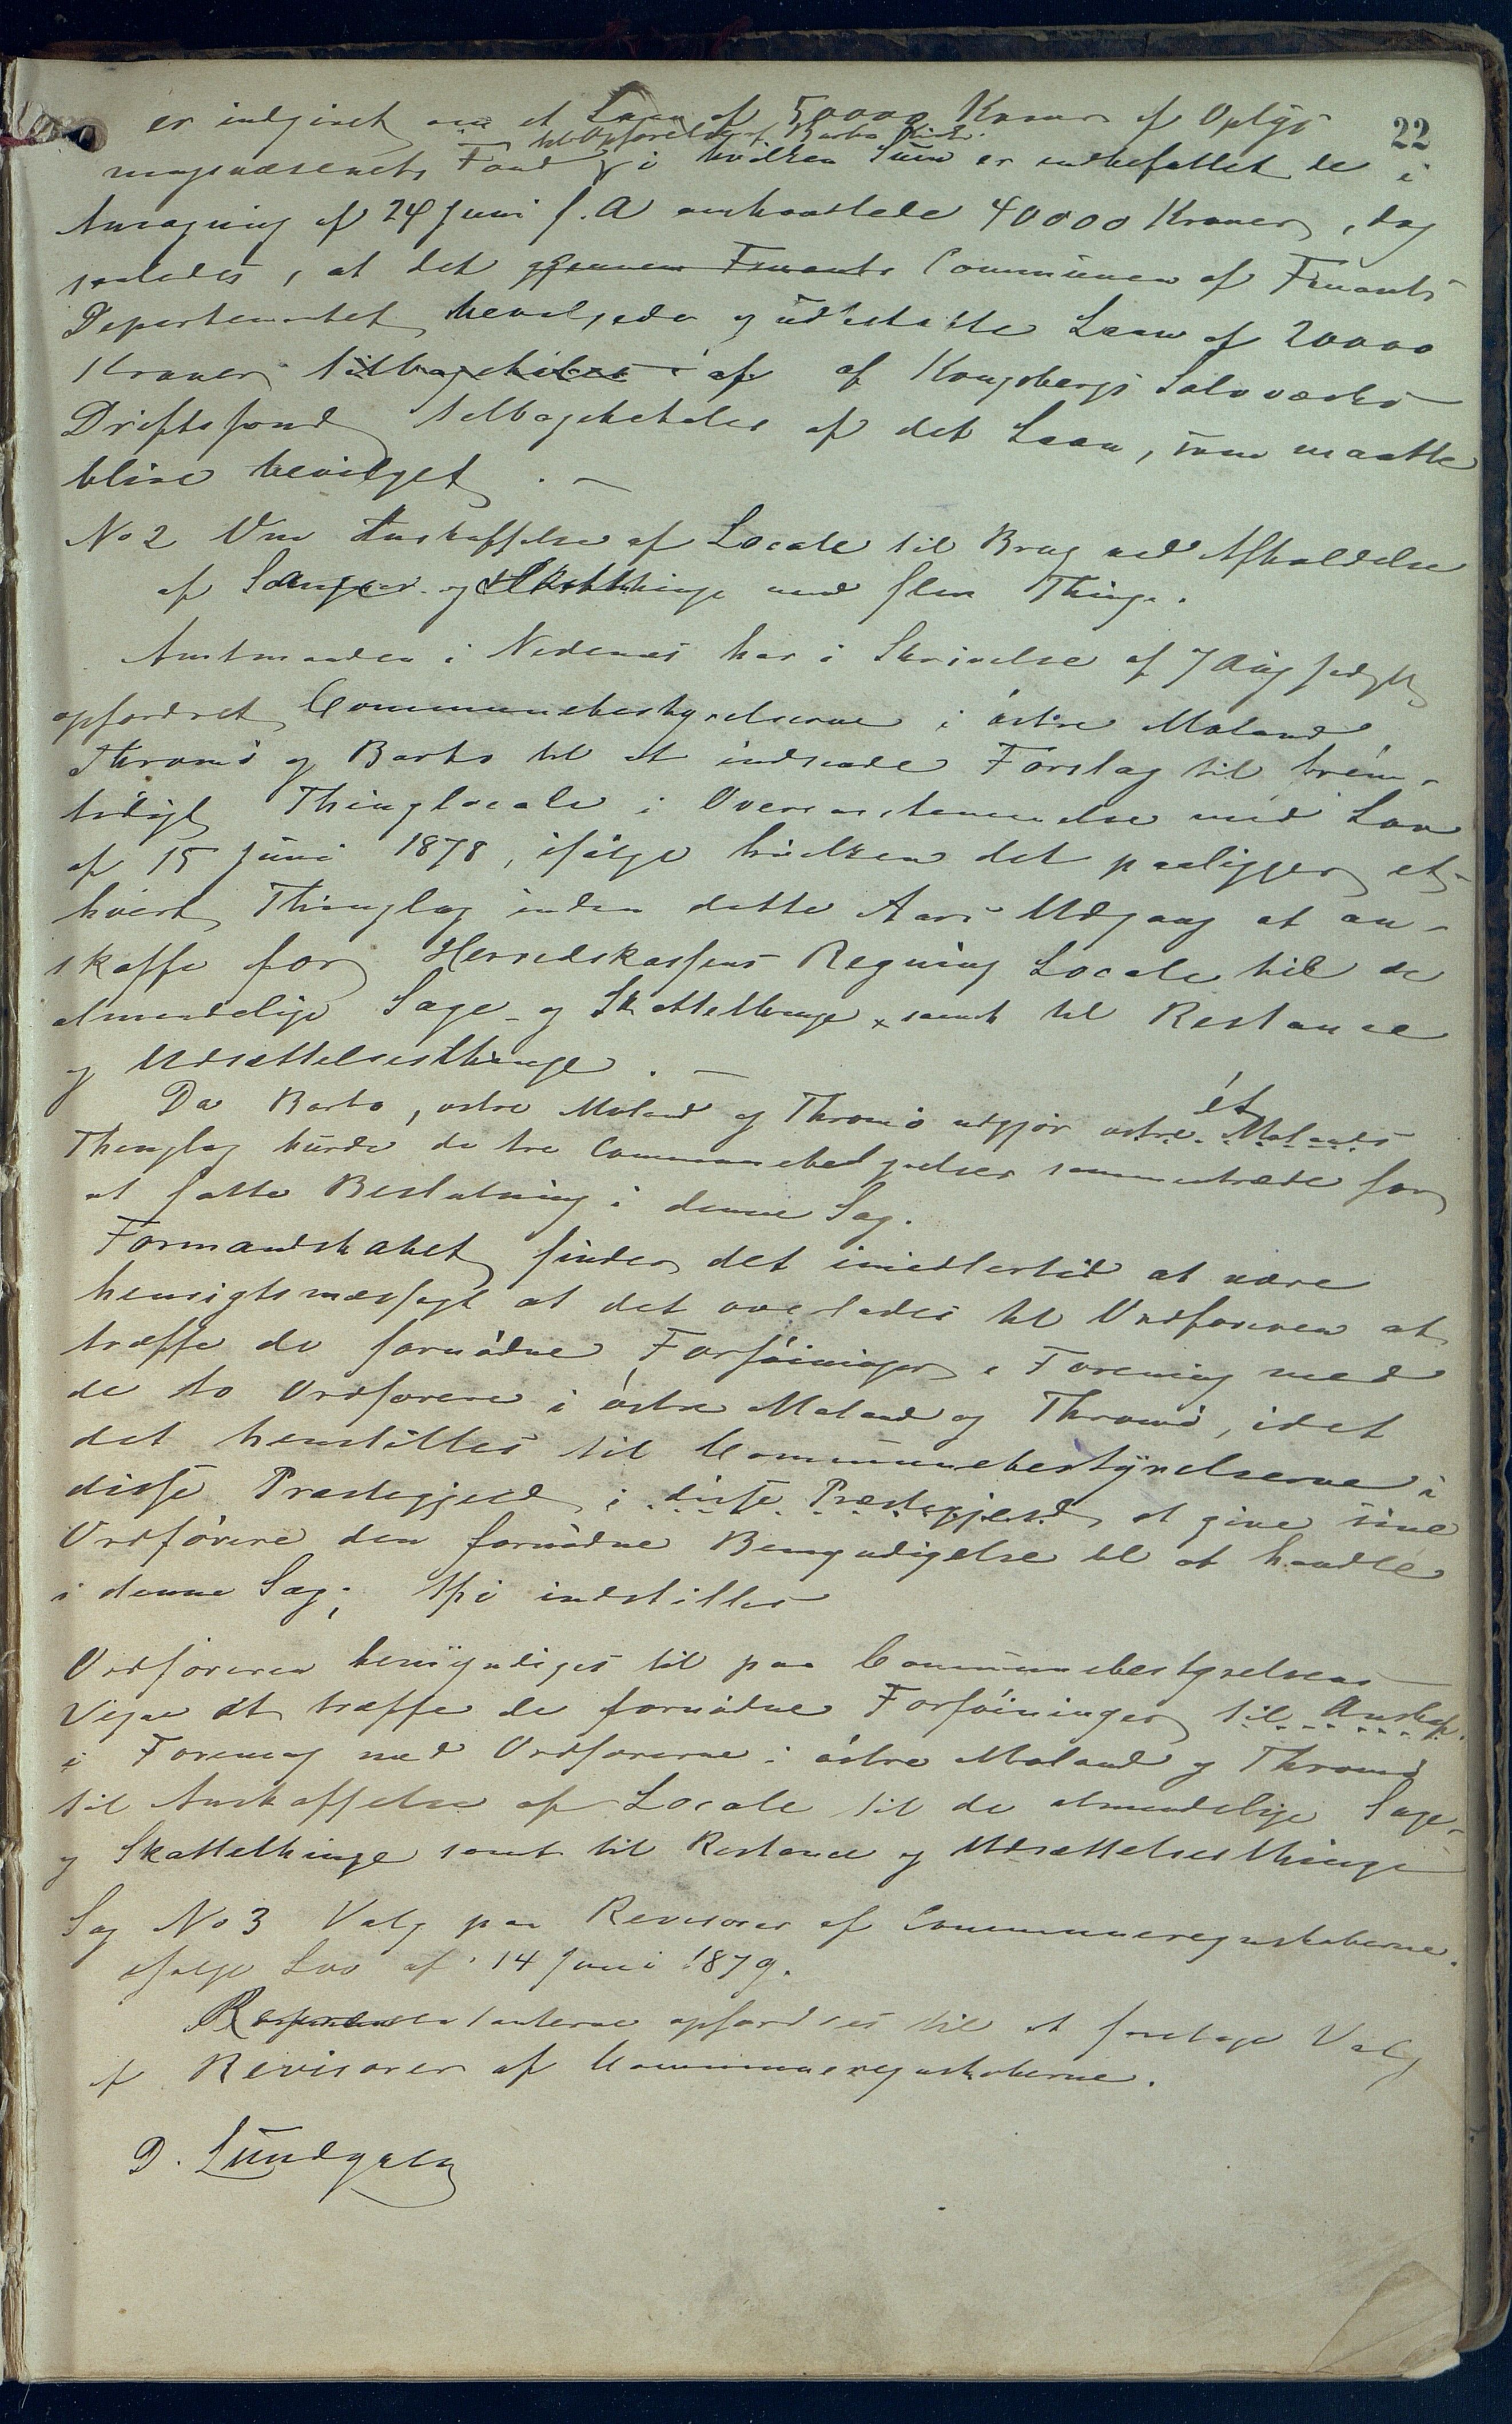 22
er indgivet om et Laan af 50000 Kroner af Oplys
til Opførelse af Barbo Kirke.
ningsvæsenets Fond i hvilken Sum er indbefattet de i
Ansøgning af 24 Juni f. A omhandlede 40000 Kroner, dog
saaledes, at det gjennem Finants Communen af Finants
Departementet bevilgede og udbetalte Laan af 20000
Kroner tilbagebetales af af Kongsbergs Sølvværks
Driftsfond tilbagebetales af det Laan, som maatte
blive bevilget. —
No 2 Om Anskaffelse af Locale til Brug ved Afholdelse
af og Skattethinge med flere Thinge.
Amtmanden i Nedenæs har i Skrivelse af 7 Aug
opfordret Communebestyrelserne i østre Moland
Thromø og Barbo til at indsende Forslag til frem-
tidigt Thinglocale i Overensstemmelse med Lov
af 15 Juni 1878, ifølge hvilken det paaligger et-
hvert Thinglag inden dette Aars Udgang at an-
skaffe for Herredskassens Regning Locale til de
almindelige Sage- og Skattethinge samt til Restance
og Udsættelsesthinge. —
Da Barbo, østre Moland og Thromø udgjør østre Molands
ét
Thinglag burde de tre Communebestyrelser sammentræde for
at fatte Beslutning i denne Sag.
Formandskabet finder det imidlertid at være
hensigtsmæssigt at det overlades til Ordføreren at
træffe de fornødne Forføininger i Forening med
de to Ordførere i østre Moland og Thromø, idet
det henstilles til Communebestyrelserne i
disse Præstegjeld i disse Præstegjeld at give sine
Ordførere den fornødne Bemyndigelse til at handle
i denne Sag; thi indstilles
Ordføreren bemyndiges til paa Communebestyrelsens
Vegne at træffe de fornødne Forføininger til Anskaf.
i Forening med Ordførerne i østre Moland og Thromø
til Anskaffelse af Locale til de almindelige Sage-
og Skattethinge samt til Restance og Udsættelsesthinge
Sag No 3 Valg paa Revisorer af Communeregnskaberne.
ifølge Lov af 14 Juni 1879.
Repræsentanterne opfordres til at foretage Valg
af Revisorer af Communeregnskaberne.
D. Lundqvist